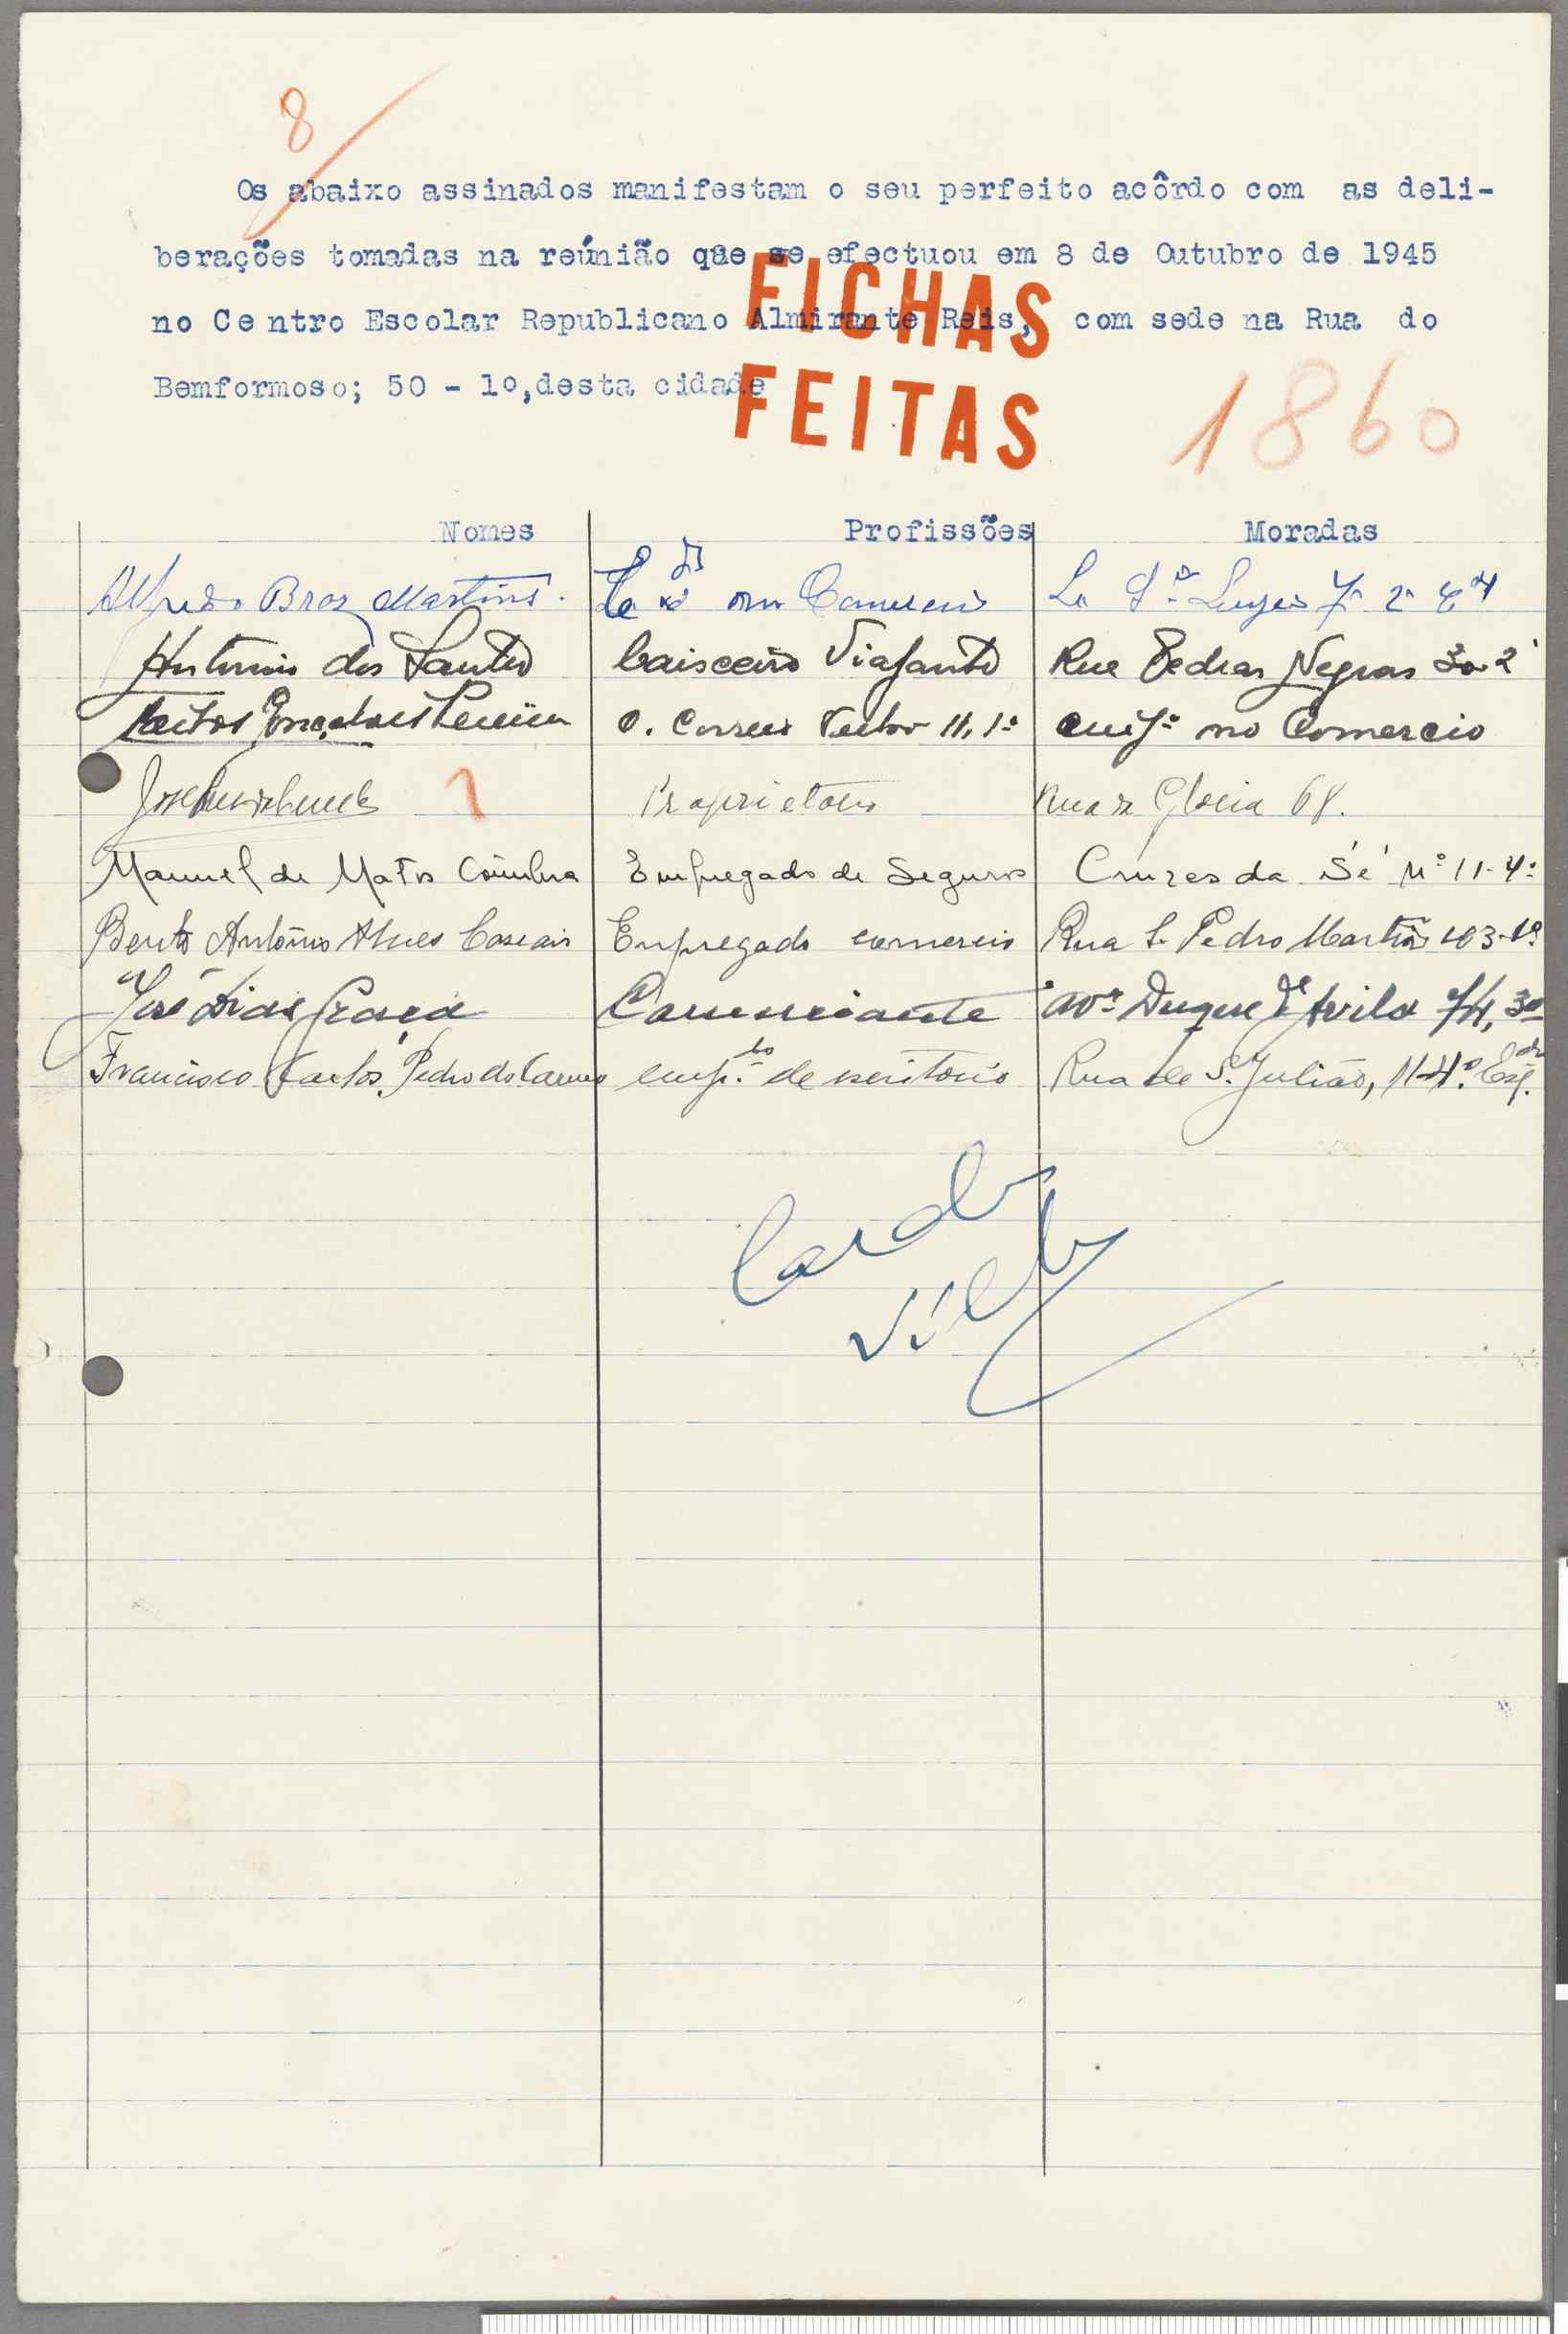 8
Os abaixo assinados manifestam o seu perfeito acôrdo com as deli-
berações tomadas na reúnião que se efectuou em 8 de Outubro de 1945
no Centro Escolar Republicano Almirante Reis, com sede na Rua do
Bemformoso; 50 - 1º, desta cidade
FICHAS
FEITAS
1860
Nomes Profissões Moradas
Alfredo Braz Martins. no Comercio
Antonio dos Santos Caixeiro Viajante Rua Pedras Negras 2º
Pereira O. Correia 11, 1º no Comercio
1 Proprietario Rua da Gloria 68.
Manuel de Matos Coimbra Empregado de Seguros Cruzes da Sé Nº 11-4º
Bento António Alves Cascais Empregado comercio Rua S. Pedro Martir 103-1º
José Dias Graça Comerciante Avª Duque d'Avila 74, 3º
Francisco Carlos Pedro do Carmo empdo. de escritorio Rua de S. Julião, 11-4º. Esq.